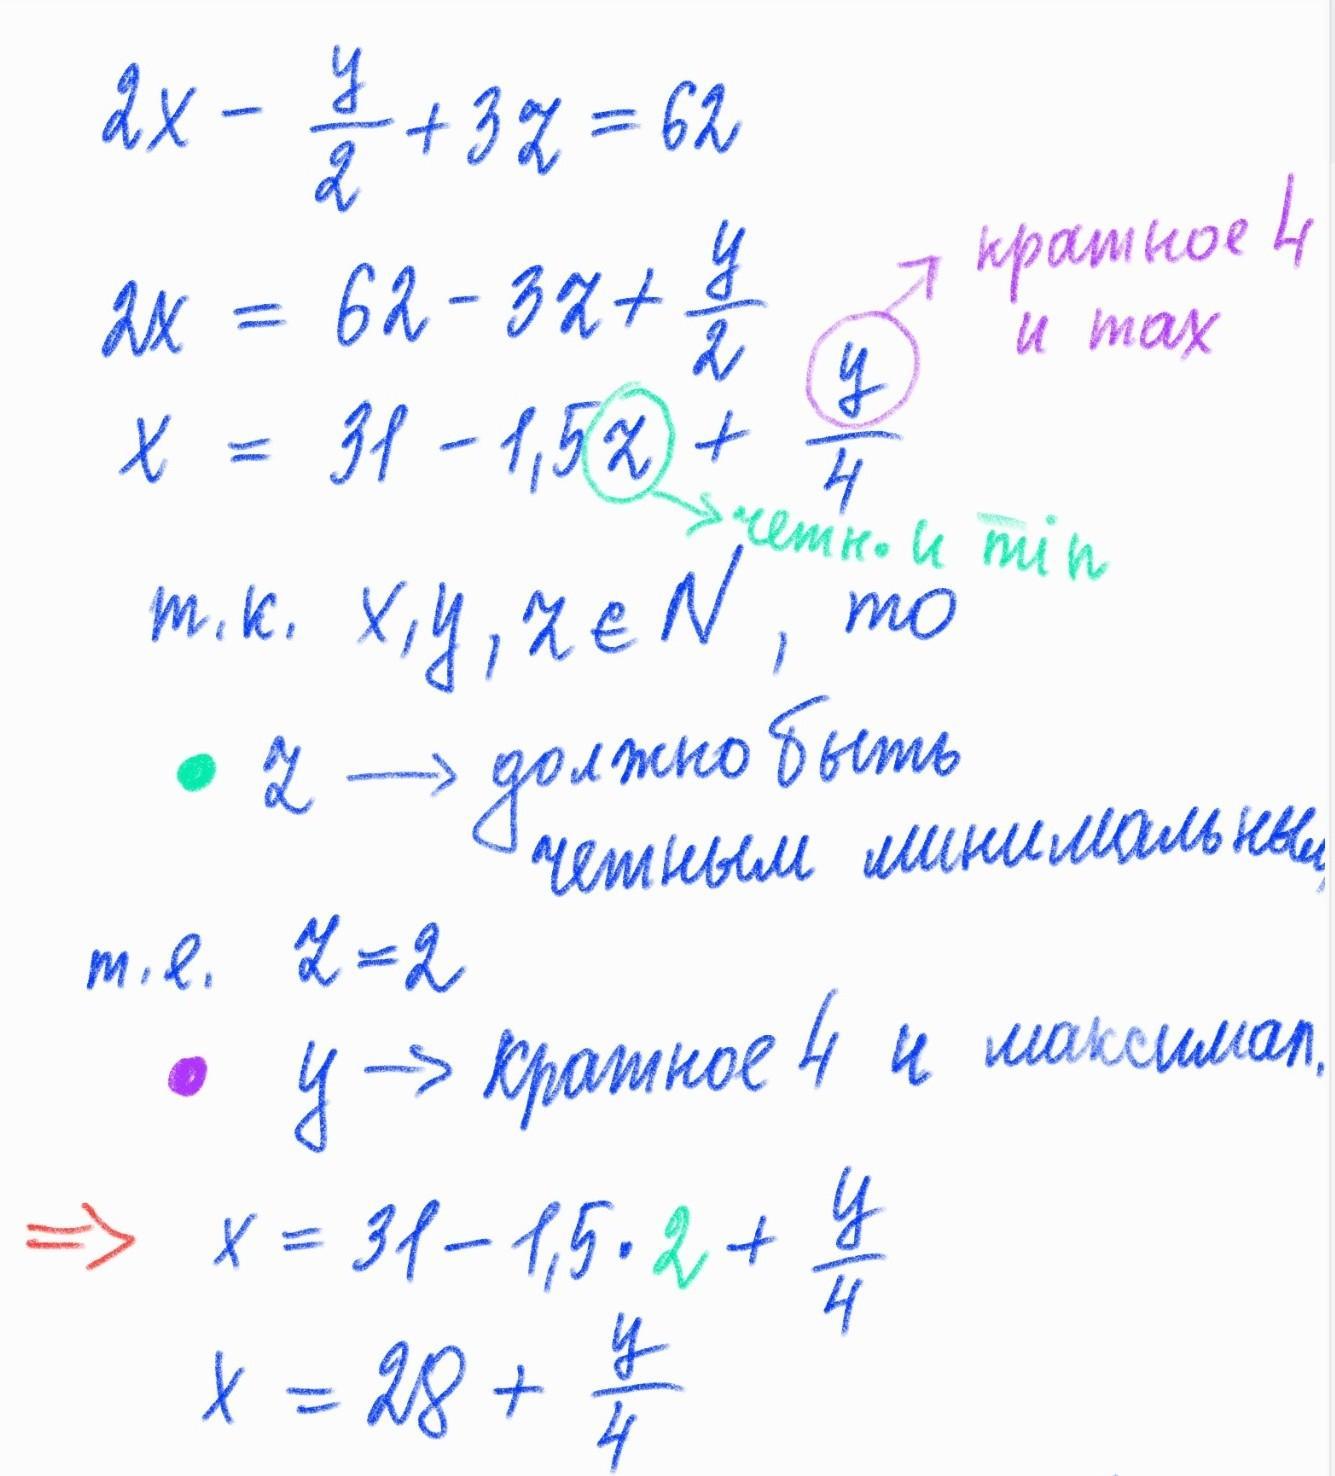 2x - y/2 + 3z = 62
2x = 62 - 3z + y/2
кратное 4
и max
x = 31 - 1,5z + y/4
четн. и min
т.к. x, y, z ∈ N, то
• z → должно быть
четным минимальным,
т.е. z = 2
• y → кратное 4 и максимал.
⇒ x = 31 - 1,5 · 2 + y/4
x = 28 + y/4